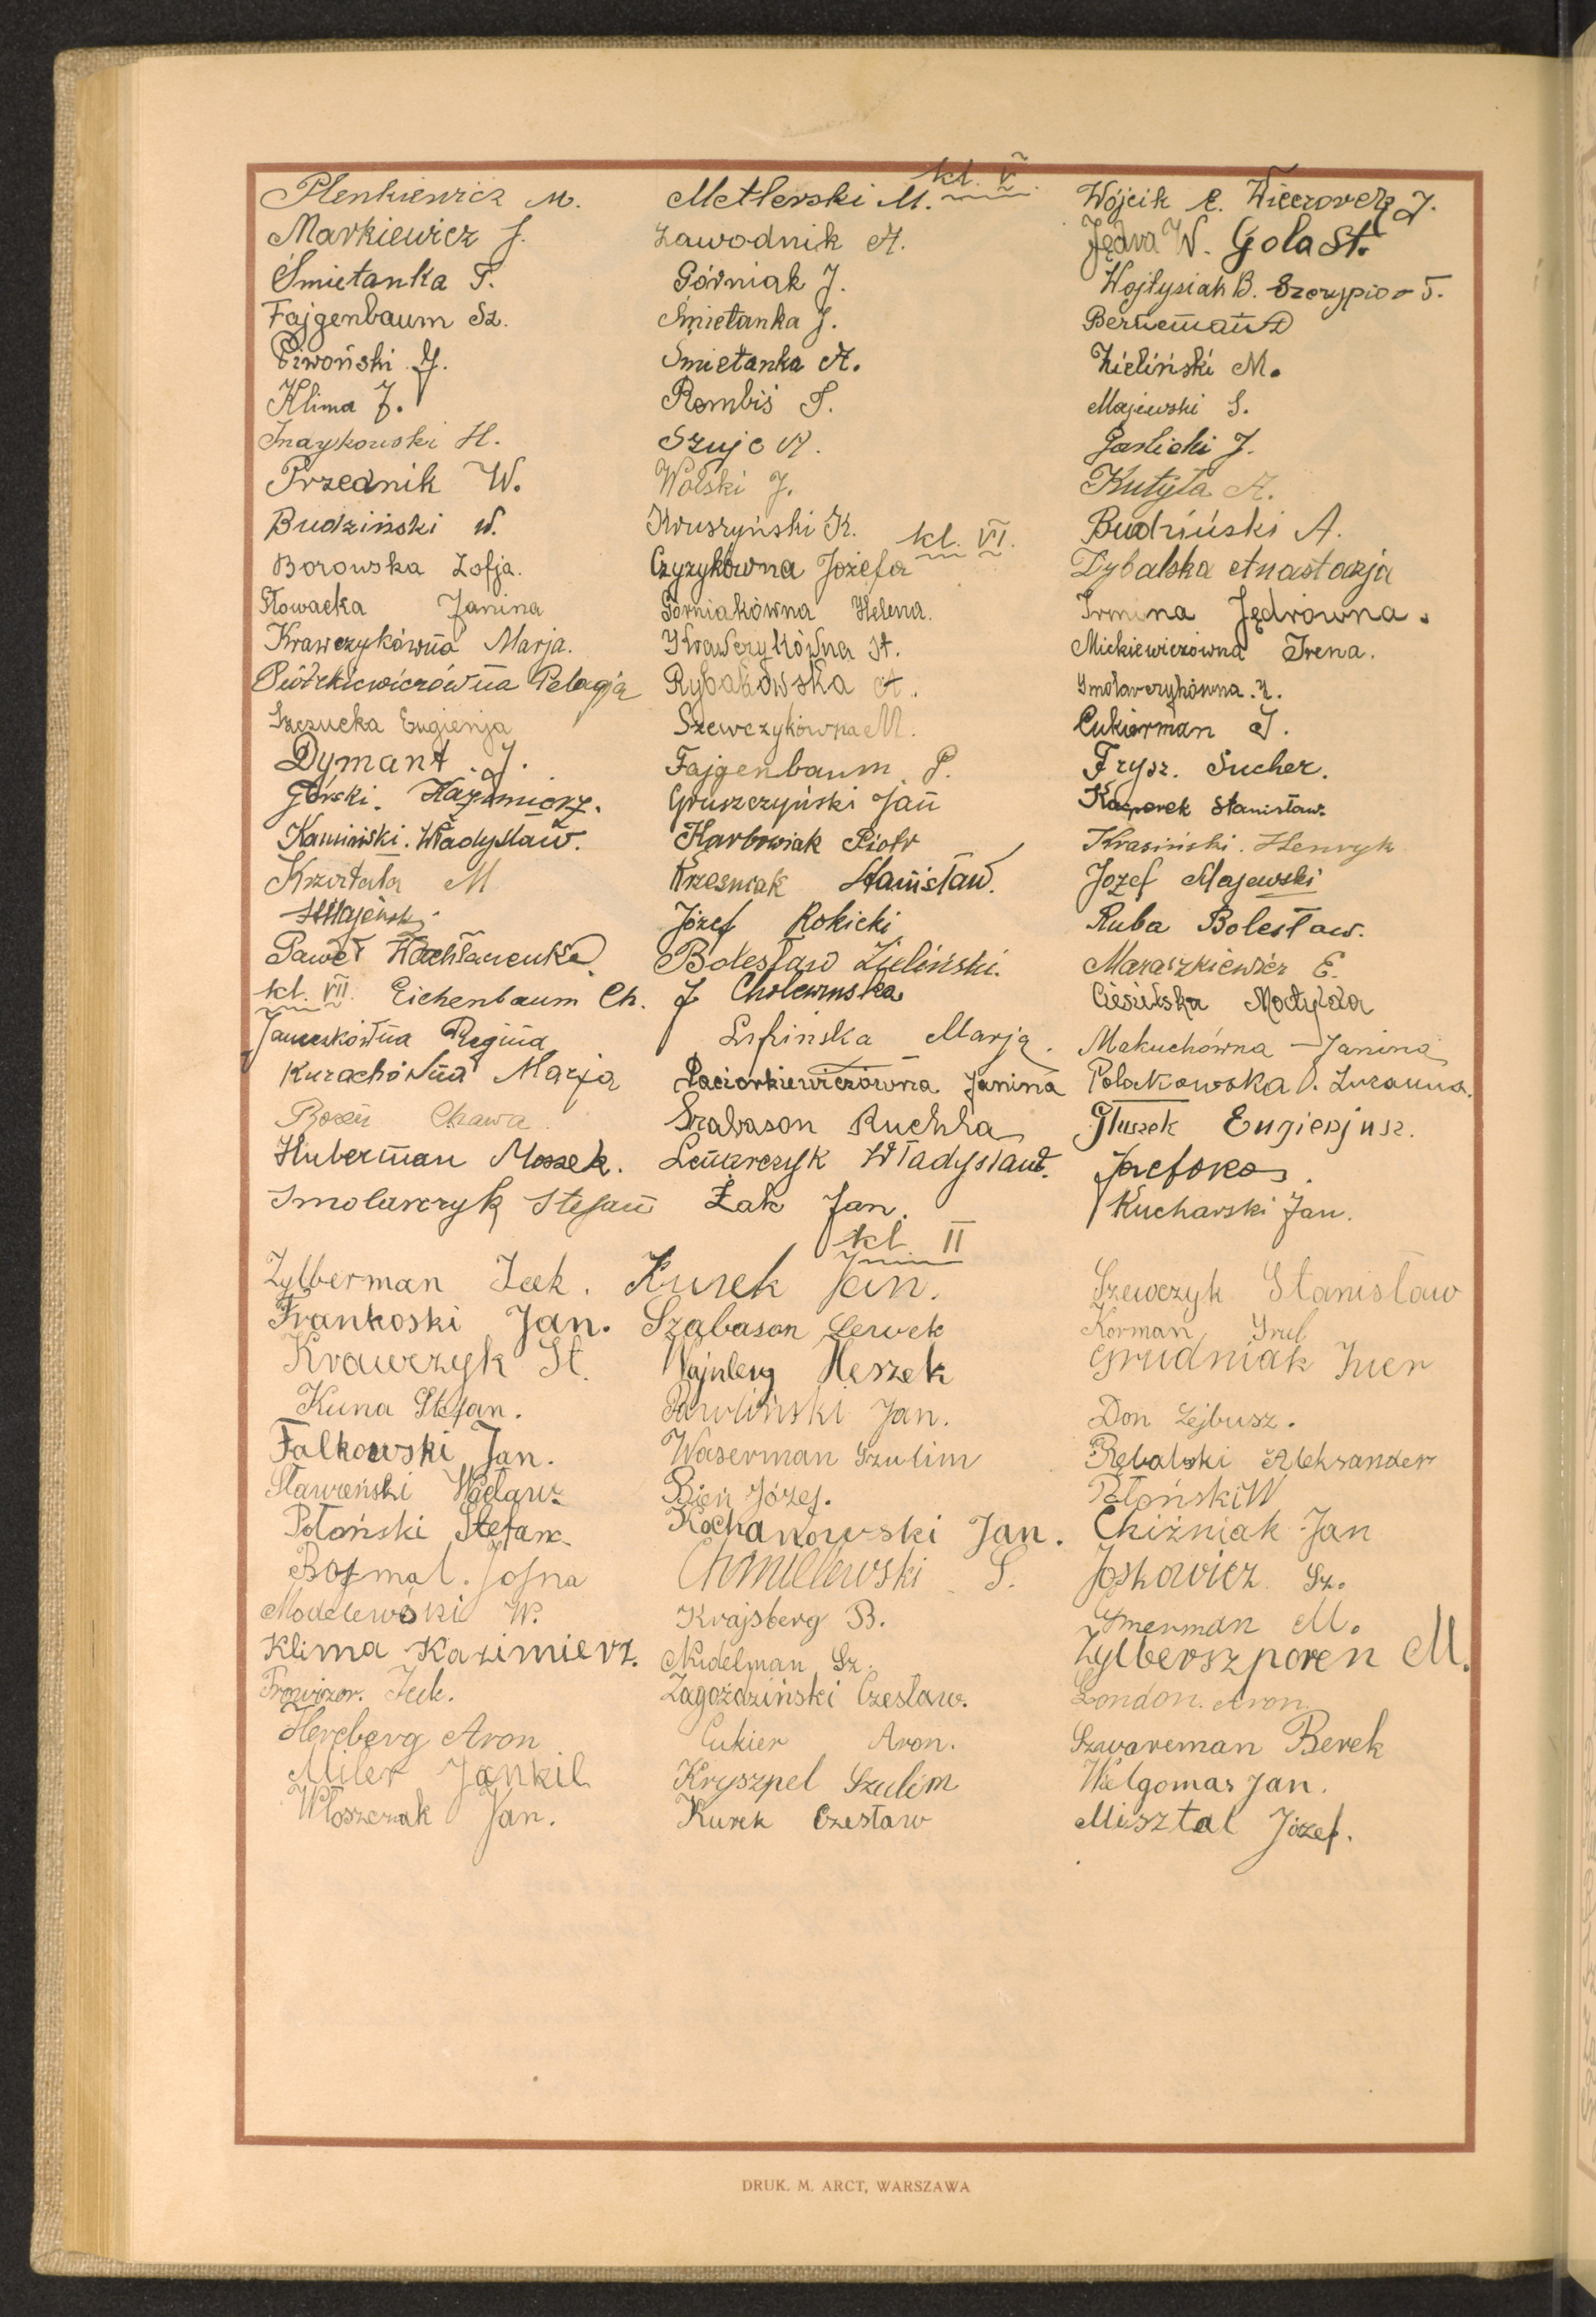 kl. V.
Plenkiewicz M. Metlerski M. Wójcik E. Wieczorek J.
Markiewicz J. Zawodnik A. Jędra W. Gola St.
Śmietanka T. Górniak J. Wojtysiak B. Szczypior T.
Fajgenbaum Sz. Śmietanka J. Berneman
Piwoński J. Śmietanka A. Zieliński M.
Klima J. Rombiś S. Majewski S.
H. Szujc A. Garlicki J.
Przednik W. Wolski J. Kutyła A.
Budziński W. Kruszyński K. Budziński A.
kl. VI.
Borowska Zofja. Czyzykówna Józefa Dybalska Anastazja
Słowacka Janina Górniakówna Helena. Irmina Jędrówna.
Krawczykówna Marja. Krawczykówna St. Mickiewiczówna Irena.
Piótrkiewiczówna Pelagja Rybakowska A. Smolarczykówna. Z.
Szczucka Eugienja Szewczykówna M. Cukierman J.
Dymant. J. Fajgenbaum P. Frysz. Sucher.
Górski. Kazimierz. Gruszczyński Jan Kacperek Stanisław.
Kamiński. Władysław. Karbowiak Piotr Krasiński. Henryk
M Krześniak Stanisław. Józef Majewski
Józef Rokicki Ruba Bolesław.
Paweł Bolesław Zieliński. Maraszkiewicz E.
kl. VII. Eichenbaum Ch. J Cholewińska Ciesielska Matylda
Regina Lipińska Marja. Makuchówna Janina
Kurachówna Marja Paciorkiewiczówna Janina Polakowska Zuzanna.
Chawa Szabason Ruchla Głuszek Eugienjusz.
Huberman Moszek. Lenarczyk Władysław. Józef Kos.
Smolarczyk Stefan Żak Jan. Kucharski Jan.
kl II
Zylberman Icek. Kurek Jan. Szewczyk Stanisław
Frankoski Jan. Szabason Lewek Korman Srul
Krawczyk St. Wajnberg Heszek Grudniak Icier
Kuna Stefan. Pawliński Jan. Don Lejbusz.
Falkowski Jan. Waserman Szulim Rębalski Aleksander
Sławeński Wacław Bień Józef. Płoński W
Płoński Stefan. Kochanowski Jan. Chiźniak Jan
Bojmal. Josna Chmielewski S. Joskowicz Sz.
Modelewski W. Krajsberg B. M.
Klima Kazimierz. Nudelman Sz. Zylberszporen M.
Prowizor. Icek. Zagożdziński Czesław. London. Aron.
Hercberg Aron Cukier Aron. Szwarcman Berek
Miler Jankil Kryszpel Szulim Welgomas Jan.
Włoszczak Jan. Kurek Czesław Misztal Józef.
DRUK. M. ARCT, WARSZAWA